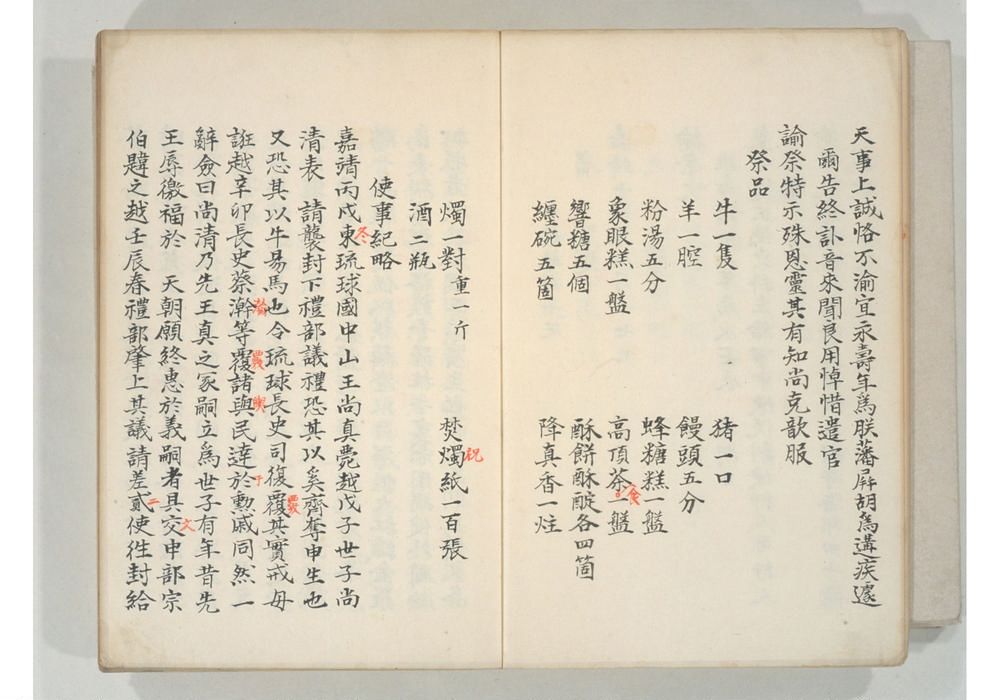 天事上誠恪不渝宜永壽年爲朕藩屛胡爲遘疾遽
爾告終訃音來聞良用悼惜遣官
諭祭特示殊恩靈其有知尚克歆服
祭品
牛一隻 猪一口
羊一腔 饅頭五分
粉湯五分 蜂糖糕一盤
象眼糕一盤 高頂茶一盤
食
響糖五個 酥餅酥𩚵各四箇
纏碗五箇 降真香一炷
燭一對重一斤 焚燭紙一百張
祝
酒二瓶
使事紀略
嘉靖丙戌東琉球國中山王尚真薨越戊子世子尚
冬
清表 請襲封下禮部議禮恐其以奚齊奪申生也
又恐其以牛易馬也令琉球長史司復覆其實戒毋
覈
誑越辛卯長史蔡瀚等覆諸與民達於勲戚同然一
瀚
覈
輿
于
辭僉曰尚清乃先王真之冢嗣立爲世子有年昔先
王辱徼福於 天朝願終惠於義嗣者具交申部宗
文
伯韙之越壬辰春禮部肇上其議請差貳使徃封給
二